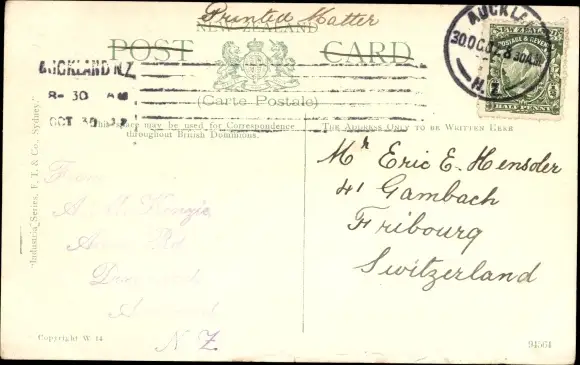 Printed Matter
NEW ZEALAND
POST CARD
(Carte Postale)
AUCKLAND N.Z.
8- 30 AM
OCT 30
AUCKLAND
30 OC 07 -8 30 AM
N.Z.
NEW ZEALAND
POSTAGE & REVENUE
HALF PENNY
This space may be used for Correspondence
throughout British Dominions.
THE ADDRESS ONLY TO BE WRITTEN HERE
Mr Eric E. Hensoler
41 Gambach
Fribourg
Switzerland
From
Rd
N Z.
"Industria" Series, F. T. & Co., Sydney."
Copyright W 14
94564